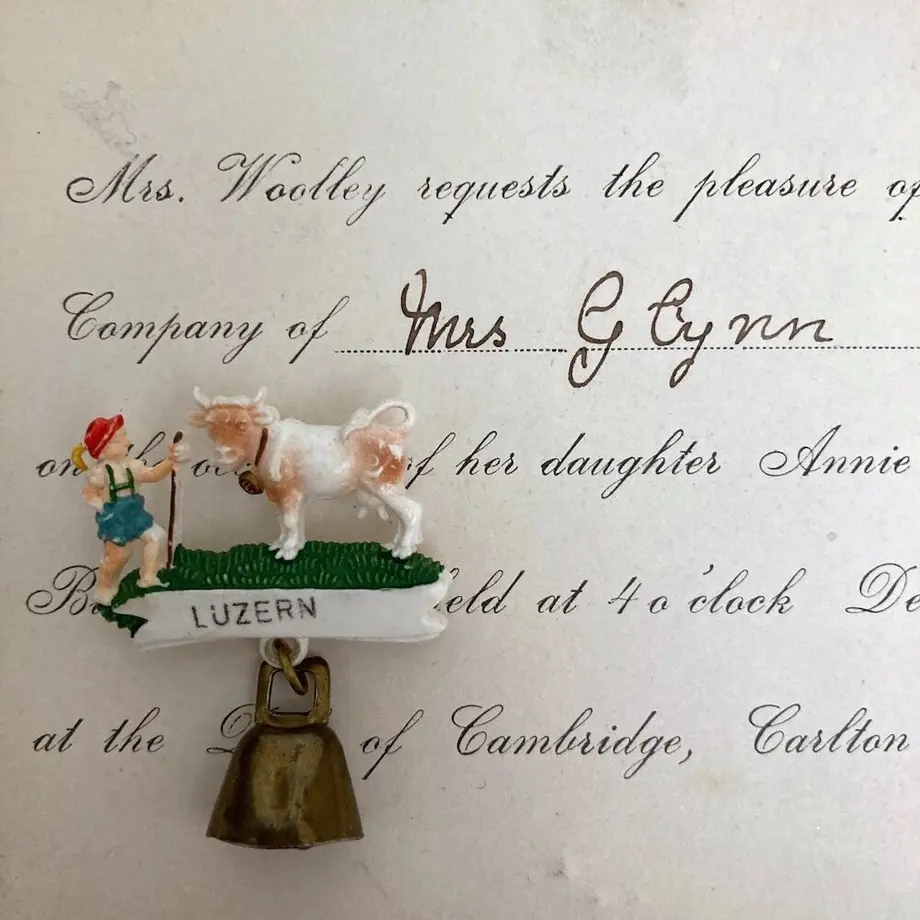 Mrs. Woolley requests the pleasure of
Company of Mrs Glynn
on of her daughter Annie
held at 4 o'clock
LUZERN
at the of Cambridge, Carlton